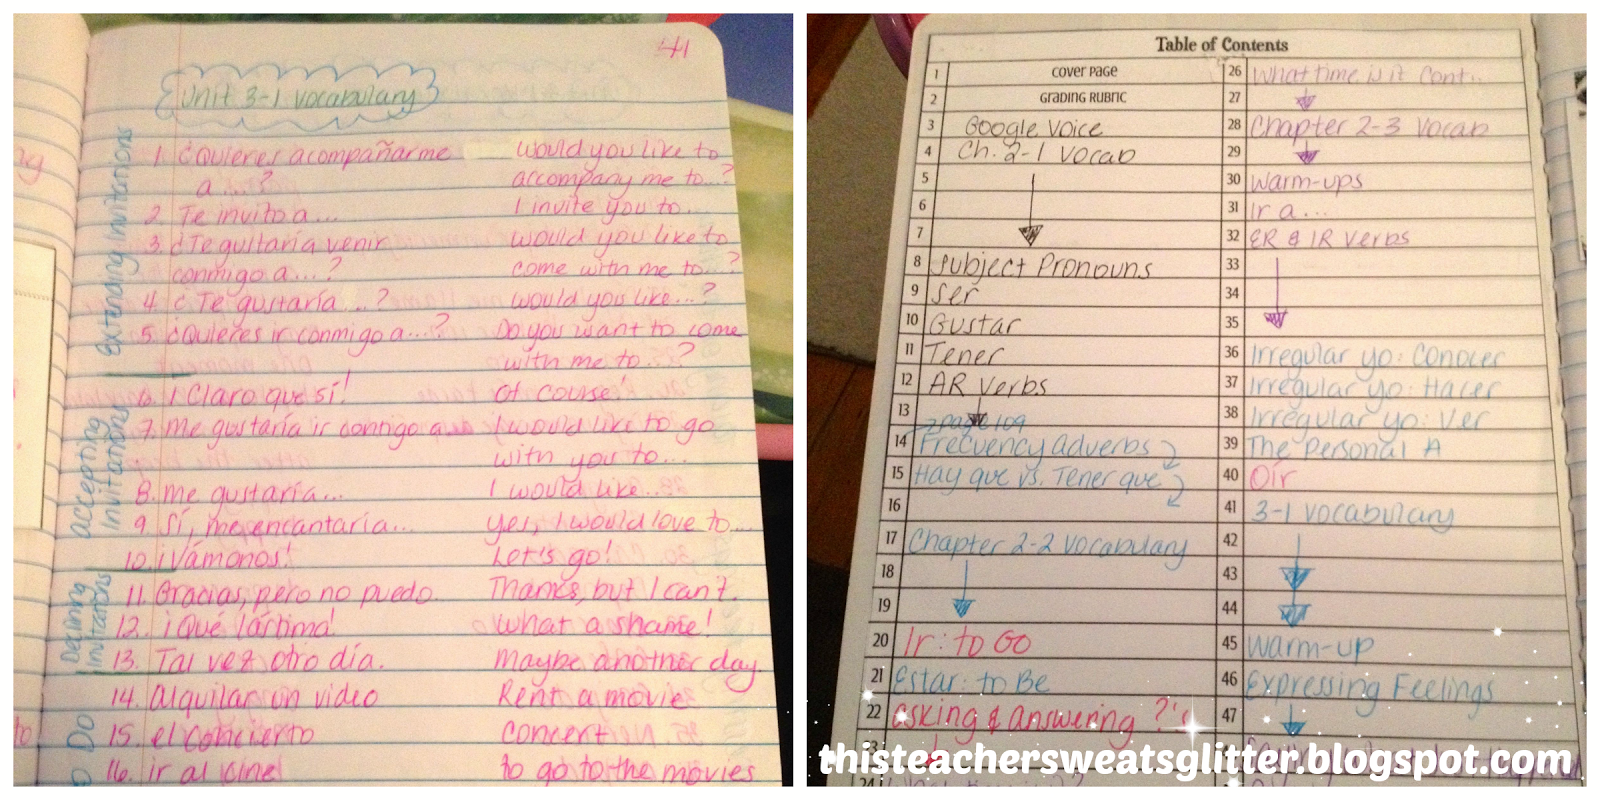 41
Unit 3-1 vocabulary
Extending Invitations
1. ¿Quieres acompañarme would you like to
a...? accompany me to...?
2. Te invito a... I invite you to...
3. ¿Te gustaría venir would you like to
conmigo a...? come with me to...?
4. ¿Te gustaría...? would you like...?
5. ¿Quieres ir conmigo a...? Do you want to come
with me to...?
accepting Invitations
6. ¡Claro que sí! Of course!
7. Me gustaría ir contigo a... I would like to go
with you to...
8. Me gustaría... I would like...
9. Sí, me encantaría... yes, I would love to...
10. ¡Vámonos! Let's go!
Declining Invitations
11. Gracias, pero no puedo. Thanks, but I can't.
12. ¡Qué lástima! what a shame!
13. Tal vez otro día. Maybe another day.
14. alquilar un video Rent a movie
Do
15. el concierto concert
16. ir al cine to go to the movies
Table of Contents
1 Cover Page
2 Grading Rubric
3 Google Voice
4 Ch. 2-1 Vocab
5
6
7
8 Subject Pronouns
9 Ser
10 Gustar
11 Tener
12 AR Verbs
13
page 109
14 Frecuency adverbs
15 Hay que vs. Tener que
16
17 Chapter 2-2 vocabulary
18
19
20 Ir: to Go
21 Estar: to Be
22 asking & answering ?'s
26 What time is it cont...
27
28 Chapter 2-3 Vocab
29
30 Warm-ups
31 Ir a...
32 ER & IR verbs
33
34
35
36 Irregular yo: Conocer
37 Irregular yo: Hacer
38 Irregular yo: Ver
39 The Personal A
40 Oír
41 3-1 vocabulary
42
43
44
45 Warm-up
46 Expressing Feelings
47
thisteachersweatsglitter.blogspot.com